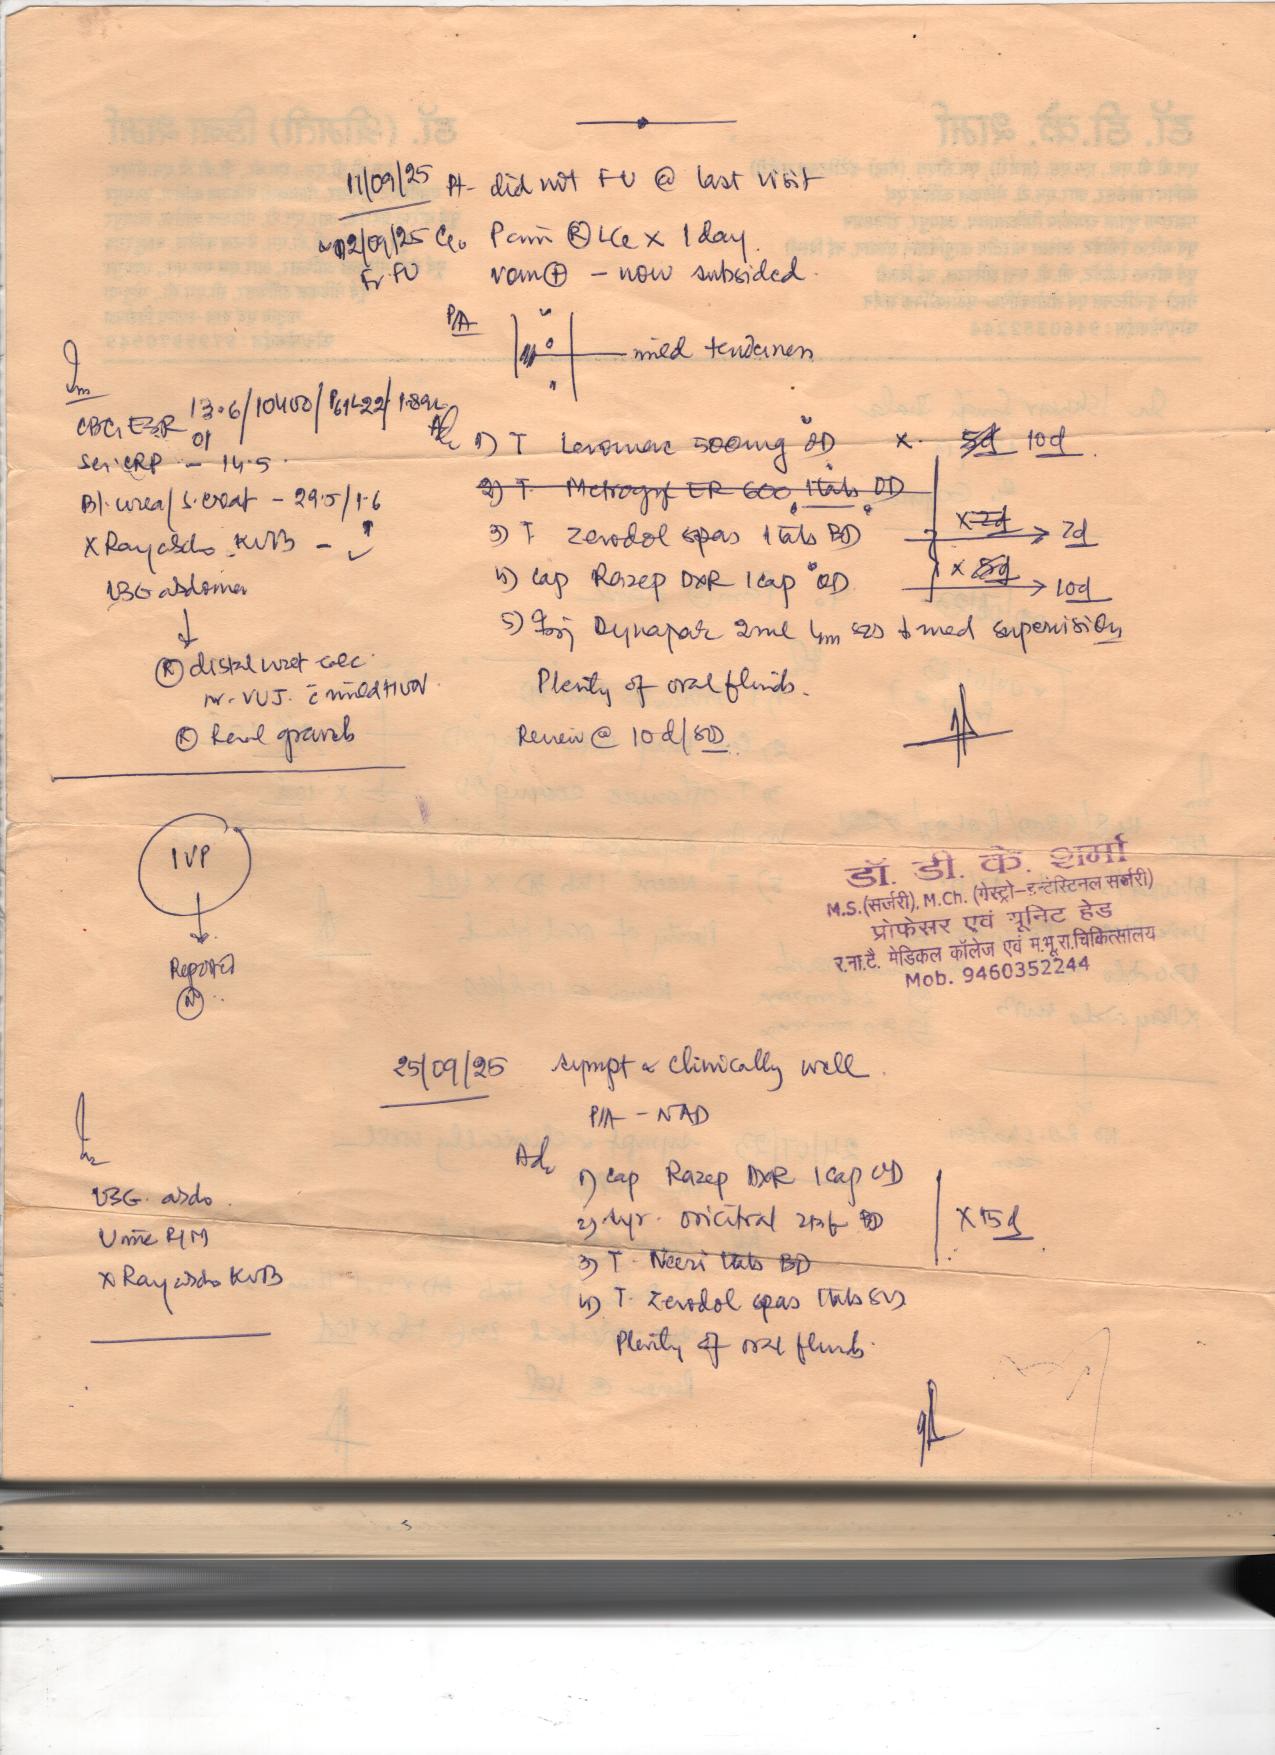 11/09/25 Pt- did not FU @ last visit
12/09/25 C/o Pain (R) × 1 day.
Fr FU vom (+) - now subsided.
P/A
mild tenderness
Inv
CBC, ESR 13.6/10400/P61L22/1.89L
01
Ser CRP - 14.5
Bl. urea/S. creat - 29.5/1.6
X Ray abdo KUB -
USG abdomen
(R) distal uret calc.
nr. VUJ. c mild HUN.
(R) Renal gravels
Adv
1) T Levomac 500mg OD × 5d 10d
2) T. Metrogyl ER 600 1tab OD
3) T Zerodol spas 1tab BD × 2d 2d
4) Cap Razep DXR 1cap OD × 5d 10d
5) Inj Dynapar 2ml im sos med supervision
Plenty of oral fluids.
Review @ 10d/SOS
IVP
Reported
(N)
डॉ. डी. के. शर्मा
M.S.(सर्जरी), M.Ch. (गेस्ट्रो-इन्टेस्टिनल सर्जरी)
प्रोफेसर एवं यूनिट हेड
र.ना.टै. मेडिकल कॉलेज एवं म.भू.रा.चिकित्सालय
Mob. 9460352244
25/09/25 sympt & clinically well.
P/A - NAD
Inv
USG. abdo.
Urine R/M
X Ray abdo KUB
Adv
1) Cap Razep DXR 1cap OD
2) Syr. oricitral 2tsf BD × 15d
3) T. Neeri 1tab BD
4) T. Zerodol spas 1tab SOS
Plenty of oral fluids.